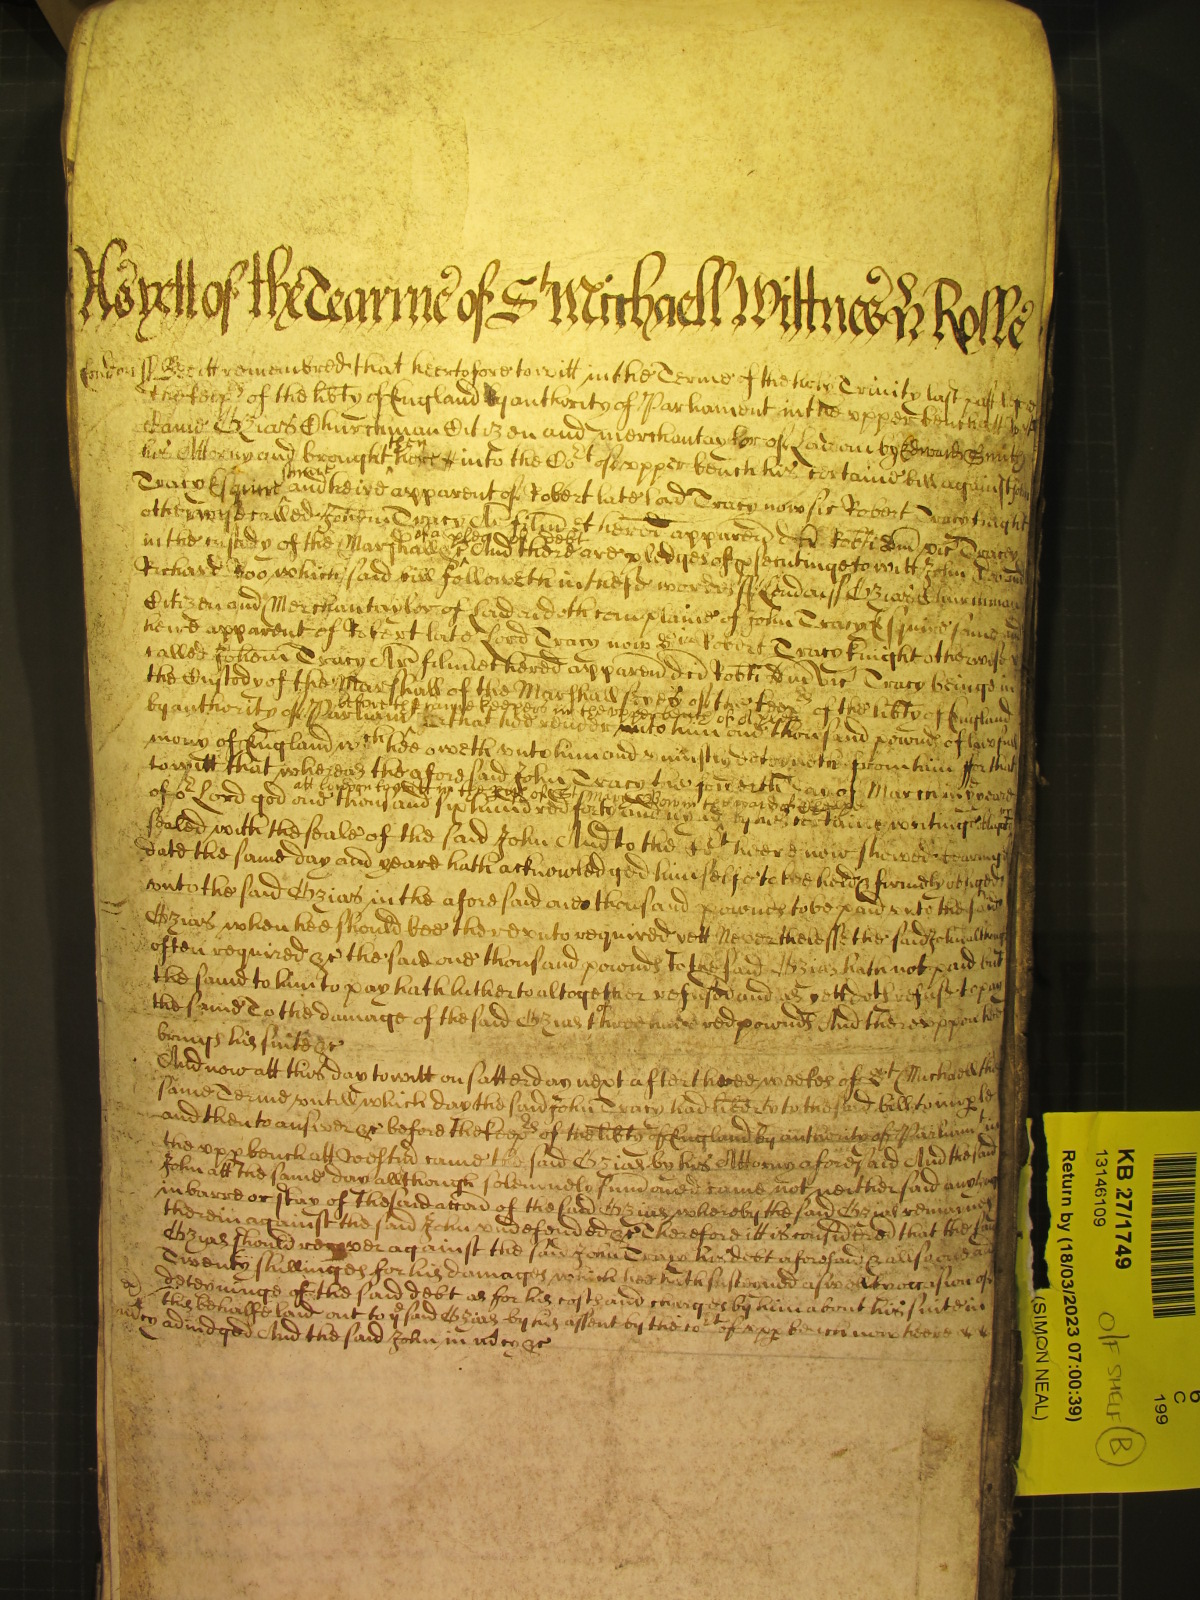 As yett of the Tearme of St Michaell Wittnes H Rolle
London ss Bee itt remembred that heertofore to witt in the Terme of the holy Trinity last past before
the keeprs of the libty of England by authority of Parliament in the upper bench att
came Ozias Churchman Citizen and merchantaylor of London by Edward Smith
his Attorny and brought then heere into the Cort of upper bench his certaine bill against John
Tracy Esquire sonne and heire apparent of Robert late lord Tracy now sic Robert Tracy knight
otherwise called Johem Tracy Ar filiu et hered apparen dci Robti Dm vic Tracy
in the custody of the Marshall &c of a plea of debt And there are pledges of psecutinge to witt John Doe and
Richard Roo which said bill followeth in these words ss London ss Ozias Churchman
Citizen and Merchantaylor of London doth complaine of John Tracy Esquire sonne and
heire apparent of Robert late Lord Tracy now Sir Robert Tracy knight otherwise
called Johem Tracy Ar filiu et hered apparen dci Robti Dm vic Tracy beinge in
the Custody of the Marshall of the Marshallsyes of the keeprs of the libty of England
by authority of Parliamt before the same keepers in the upper bench of a plea that hee render unto him one thousand pownds of lawfull
mony of England wch hee oweth unto him and uniustly deteyneth from him For that
to witt that whereas the aforesaid John Tracy the fowerth day of March in ye yeare
of or Lord god one thousand six hundred forty and by his certaine writinge
sealed with the seale of the said John And to the Cort heere now shewed bearinge
date the same day and yeare hath acknowledged himselfe to be held & firmely obliged
unto the said Ozias in the aforesaid one thousand pownds to be paid unto the said
Ozias when hee should bee thereunto required yett Neverthelesse the said John although
often required &c the said one thousand pownds to the said Ozias hath not paid but
the same to him to pay hath hitherto altogether refused and as yett doth refuse to pay
the same To the damage of the said Ozias three hundred pownds And thereuppon hee
brings his suite &c
And now att this day to witt on satterday next after three weekes of St Michaell the
same Terme untill which day the said John Tracy had liberty to the said bill to imple
and then to answer &c before the keeprs of the libty of England by authority of Parliamt in
the upp bench att Westmr came the said Ozias by his Attorny aforesaid And the said
John att the same day allthough solemnely summoned came not neither said anythinge
in barre or stay of the said accon of the said Ozias whereby the said Ozias remaines
therein against the said John undefended &c Therefore itt is considered that the said
Ozias should recover against the said John Tracy his debt aforesaid & allsoe one and
Twenty shillinges for his damages which hee hath susteyned aswell by occasion of
deteyninge of the said debt as for his costs and charges by him about his suite in
this behalfe laid out to ye said Ozias by his assent by the cort of upp bench now heere
adiudged And the said John in mcy &c
mcy
KB 27/1749
13146109
Return by (18/03/2023 07:00:39)
(SIMON NEAL)
O/F SHELF B
6
C
199